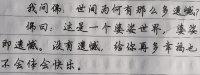 我问佛：世间为何有那么多遗憾？
佛曰：这是一个婆娑世界，婆娑
即遗憾。没有遗憾，给你再多幸福也
不会体会快乐。